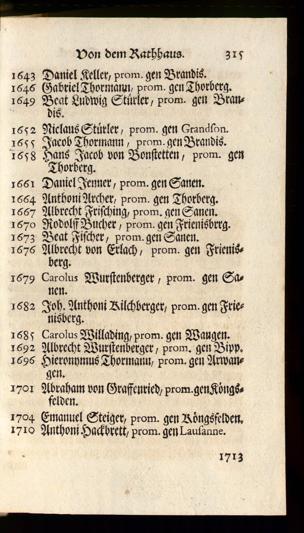 Von dem Rathhaus. 315
1643 Daniel Keller, prom. gen Brandis.
1646 Gabriel Thormann, prom. gen Thorberg.
1649 Beat Ludwig Stürler, prom. gen Bran-
dis.
1652 Niclaus Stürler, prom. gen Grandson.
1655 Jacob Thormann, prom. gen Brandis.
1658 Hans Jacob von Bonstetten, prom. gen
Thorberg.
1661 Daniel Jenner, prom. gen Sanen.
1664 Anthoni Archer, prom. gen Thorberg.
1667 Albrecht Frisching, prom. gen Sanen.
1670 Rodolff Bucher, prom. gen Frienisbrrg.
1673 Beat Fischer, prom. gen Sanen.
1676 Albrecht von Erlach, prom. gen Frienis-
berg.
1679 Carolus Wurstenberger, prom. gen Sa-
nen.
1682 Joh. Anthoni Kilchberger, prom. gen Frie-
nisberg.
1685 Carolus Willading, prom. gen Wangen.
1692 Albrecht Wurstenberger, prom. gen Bipp.
1696 Hieronymus Thormann, prom. gen Arwan-
gen.
1701 Abraham von Graffenried, prom. gen Köngs-
felden.
1704 Emanuel Steiger, prom. gen Köngsfelden.
1710 Anthoni Hackbrett, prom. gen Lausanne.
1713